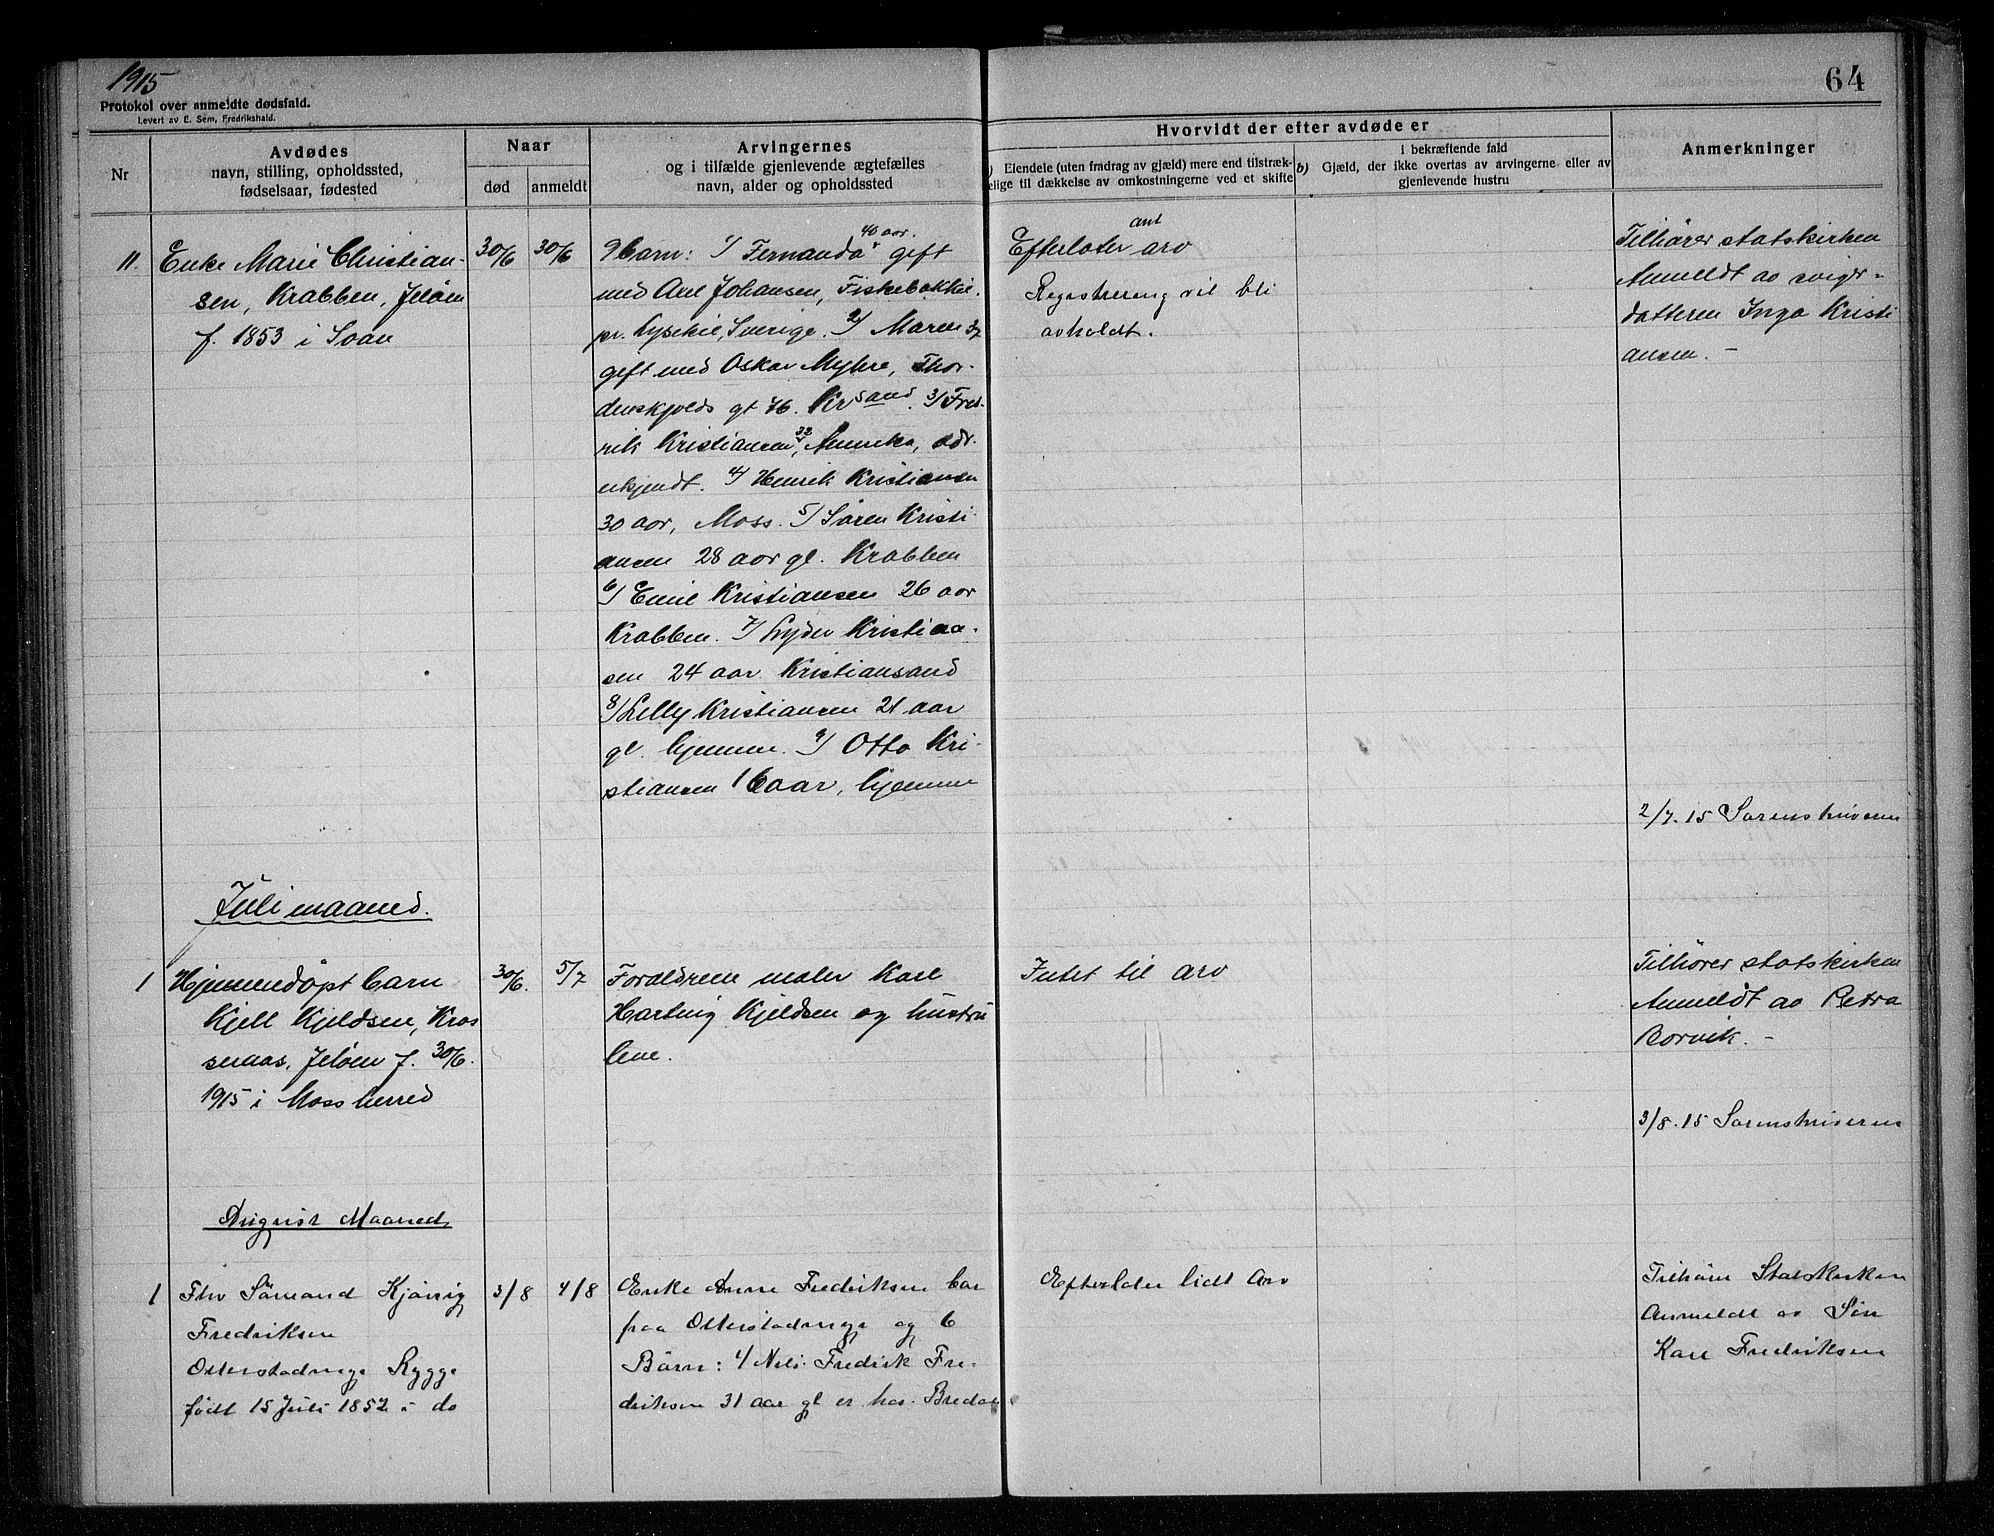 1915
64
Protokol over anmeldte dødsfald.
Levert av E. Sem, Fredrikshald.
Nr
Avdødes
navn, stilling, opholdssted,
fødselsaar, fødested
Naar
død
anmeldt
Arvingernes
og i tilfælde gjenlevende ægtefælles
navn, alder og opholdssted
Hvorvidt der efter avdøde er
Eiendele (uten fradrag av gjæld) mere end tilstræk-
elige til dækkelse av omkostningerne ved et skifte
i bekræftende fald
b) Gjæld, der ikke overtas av arvingerne eller av
gjenlevende hustru
Anmerkninger
11.
Enke Marie Christian-
sen, Krabben, Jeløen
f. 1853 i Soon
30/6
30/6
9 barn: 1/ Fernanda 40 aar. gift
med Johansen, Fiskebækkil.
pr. Lysekil, Sverige. 2/ Maren
gift med Oskar Myhre, Thor-
denskjolds gt 76. Krsand. 3/ Fred-
rik Kristiansen 32, Amerika, adr.
ukjendt. 4/ Henrik Kristiansen
30 aar, Moss. 5/ Sören Kristi-
ansen 28 aar gl. Krabben
6/ Emil Kristiansen 26 aar
Krabben. 7/ Lyder Kristian-
sen 24 aar Kristiansand
8/ Lelly Kristiansen 21 aar
gl. hjemme. 9/ Otto Kri-
stiansen 16 aar, hjemme
Efterlater ant arv
Registrering vil bli
avholdt.
Tilhører statskirken
Anmeldt av sviger-
datteren Inga Kristi
ansen. -
2/7. 15 Sorenskriveren
Juli maaned.
1
Hjemmedøpt barn
Kjell Kjeldsen, Kros
senaas, Jeløen f. 30/6.
1915 i Moss herred
30/6.
5/7
Foraldrene maler Karl
Hartvig Kjeldsen og hustru
Intet til arv
Tilhører statskirken
Anmeldt av Petra
Borvik. -
3/8. 15 Sorenskriveren
August Maaned
1
Fhv Sömand
Fredriksen
Rygge
født 15 Juli 1852 i do
3/8
4/8
Enke Anne Fredriksen bor
paa og 6
Börn: 1/ Nils Fredrik Fre-
driksen 31 aar gl er hos
Efterlader lidt Arv
Tilhører Statskirken
Anmeldt av Sön
Karl Fredriksen